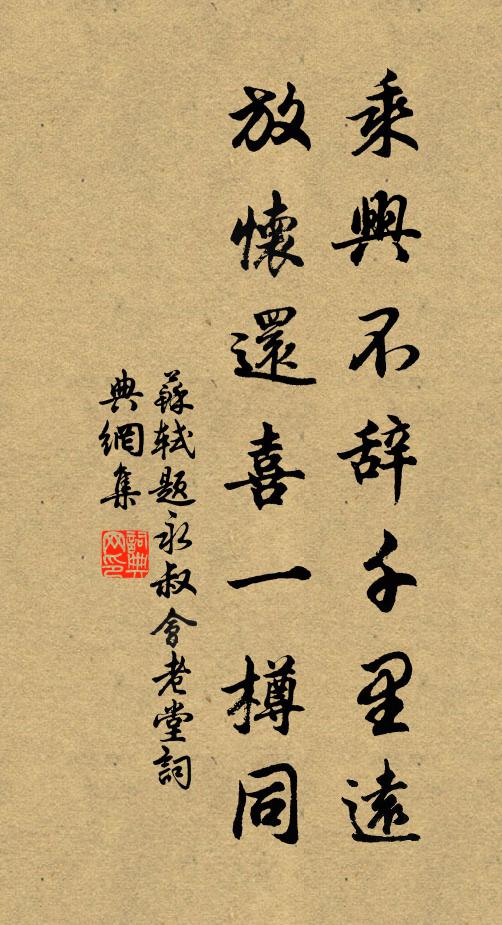 乘興不辞千里遠
放懷還喜一樽同
蘇軾題永叔會老堂詞
典網集
詞典网印